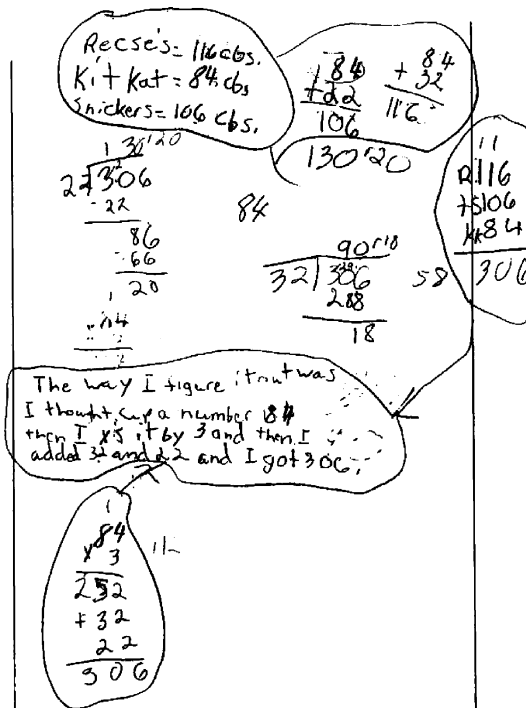 Reese's = 116 cbs.
Kit Kat = 84 cbs
Snickers = 106 cbs.
84
+22
106
84
+ 32
116
130r20
13r20
22)306
-22
86
-66
20
84
90r18
32)306
288
18
58
11
R116
+S106
KK84
306
The way I figure it out was
I thought up a number 84
then I x's it by 3 and then I
added 32 and 22 and I got 306.
1
84
x 3
252
+ 32
22
306